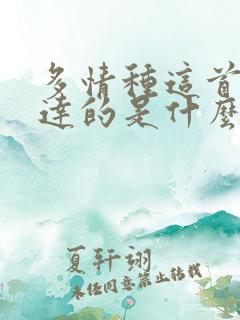 多情種這首
達的是什麼
夏軒翊
未任同意禁止转载